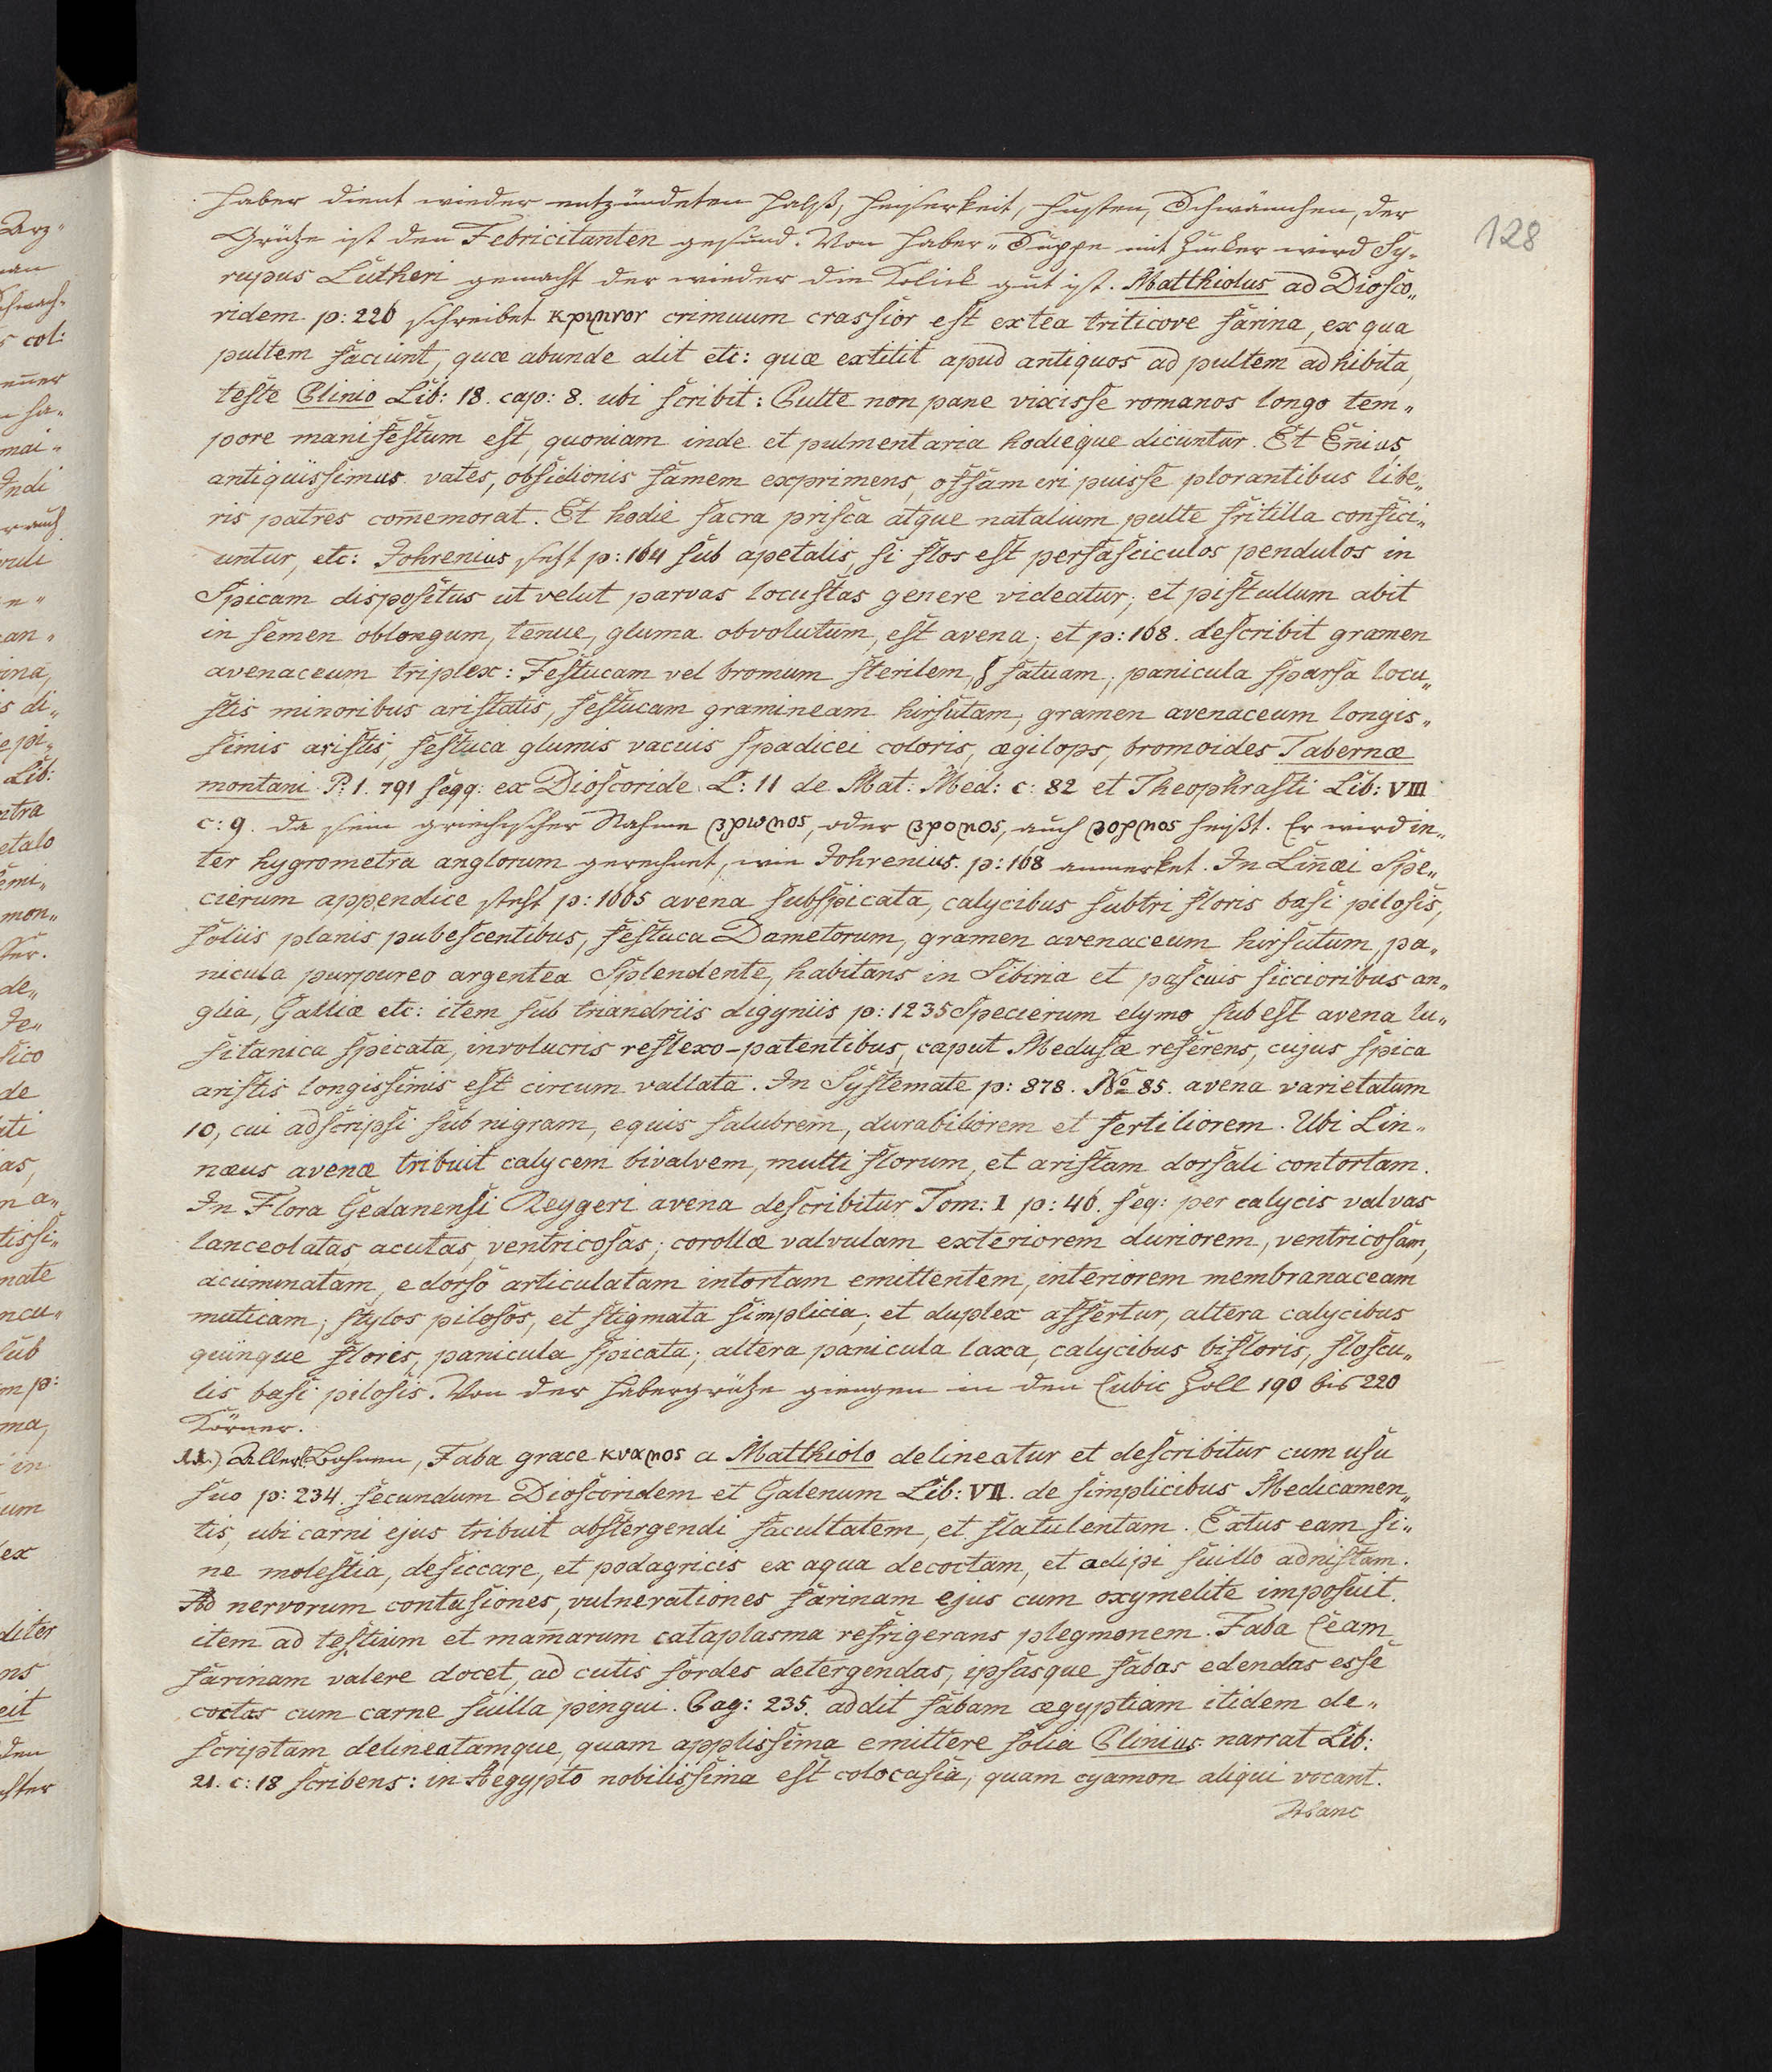 128
Haber dient wieder entzündeten Halß, Heiserkeit, Husten, Schwämchen, der
Grütze ist den Febricitanten gesund. Von Haber„Suppe mit Zucker wird Sy„
rupus Lutheri gemacht der wieder die Kolick gut ist. Matthiolus ad Diosco„
ridem p: 226 schreibet κριμνον crimnum crassior est ex tea triticove farina, ex qua
pultem faciunt, quæ abunde alit etc: quæ extitit apud antiquos ad pultem adhibita,
teste Plinio Lib: 18. cap: 8. ubi scribit: Pulte non pane vixisse romanos longo tem„
pore manifestum est, quoniam inde et pulmentaria hodieque dicuntur. Et Eñius,
antiquissimus vates, obsidionis famem exprimens, offam eripuisse plorantibus libe„
ris patres com̄emorat. Et hodie sacra prisca atque natalium pulte fritilla confici„
untur, etc: Johrenius setzt p: 164 sub apetalis, si flos est per fasciculos pendulos in
Spicam dispositus ut velut parvas locustas genere videatur, et pistullum abit
in semen oblongum, tenue, gluma obvolutum, est avena; et p: 168. describit gramen
avenaceum triplex: Festucam vel bromum sterilem, § fatuam, panicula sparsa locu„
stis minoribus aristatis, festucam gramineam hirsutam, gramen avenaceum longis„
simis aristis, festuca glumis vacuis spadicei coloris, ægilops, bromoides Tabernæ
montani P: 1. 791 seqq: ex Dioscoride L: 11 de Mat: Med: c: 82 et Theophrasti Lib: VIII
c: 9. da sein griechischer Nahme βρωμος, oder βρομος, auch βορμος heißt. Er wird in„
ter hygrometra anglorum gerechnet, wie Johrenius p: 168 anmerket. In Liñæi Spe„
cierum appendice steht p: 1665 avena subspicata, calycibus subtrifloris basi pilosis,
foliis planis pubescentibus, festuca Dametorum, gramen avenaceum hirsutum, pa„
nicula purpureo argentea Splendente, habitans in Sibiria et pascuis siccioribus an„
glia, Galliæ etc: item sub triandriis digyniis p: 1235 Specierum elymo subest avena lu„
sitanica spicata, involucris reflexo-patentibus, caput Medusæ referens, cujus spica
aristis longissimis est circum vallata. In Systemate p: 878. No 85. avena varietatum
10, cui adscripsi sub nigram, equis salubrem, durabiliorem et fertiliorem. Ubi Lin„
næus avenæ tribuit calycem bivalvem, multiflorum, et aristam dorsali contortam.
In Flora Gedanensi Reygeri avena describitur Tom: I p: 46. seq: per calycis valvas
lanceolatas, acutas, ventricosas; corollæ valvulam exteriorem duriorem, ventricosam,
acuminatam, e dorso articulatam intortam emittentem, interiorem membranaceam
muticam; stylos pilosos, et stigmata simplicia; et duplex affertur, altera calycibus
quinque floris, panicula spicata; altera panicula laxa, calycibus bifloris, floscu„
lis basi pilosis. Von der Habergrütze giengen in den Cubic Zoll 190 bis 220
Körner.
11.) Aller Bohnen, Faba græce κυαμος a Matthiolo delineatur et describitur cum usu
suo p: 234. secundum Dioscoridem et Galenum Lib: VII. de simplicibus Medicamen„
tis, ubi carni ejus tribuit abstergendi facultatem, et flatulentam. Extus eam si„
ne molestia, desiccare, et podagricis ex aqua decoctam, et adipi suillo admistam.
Ad nervorum contusiones, vulnerationes farinam ejus cum oxymelite imposuit.
item ad testium et mam̄arum cataplasma refrigerans plegmonem. Faba Ceam
farinam valere docet, ad cutis sordes detergendas, ipsasque fabas edendas esse
coctas cum carne suilla pingui. Pag: 235. addit fabam ægyptiam itidem de„
scriptam delineatamque, quam applissima emittere folia Plinius narrat Lib:
21. c: 18 scribens: in Aegypto nobilissima est colocasia, quam cyamon aliqui vocant.
Hanc